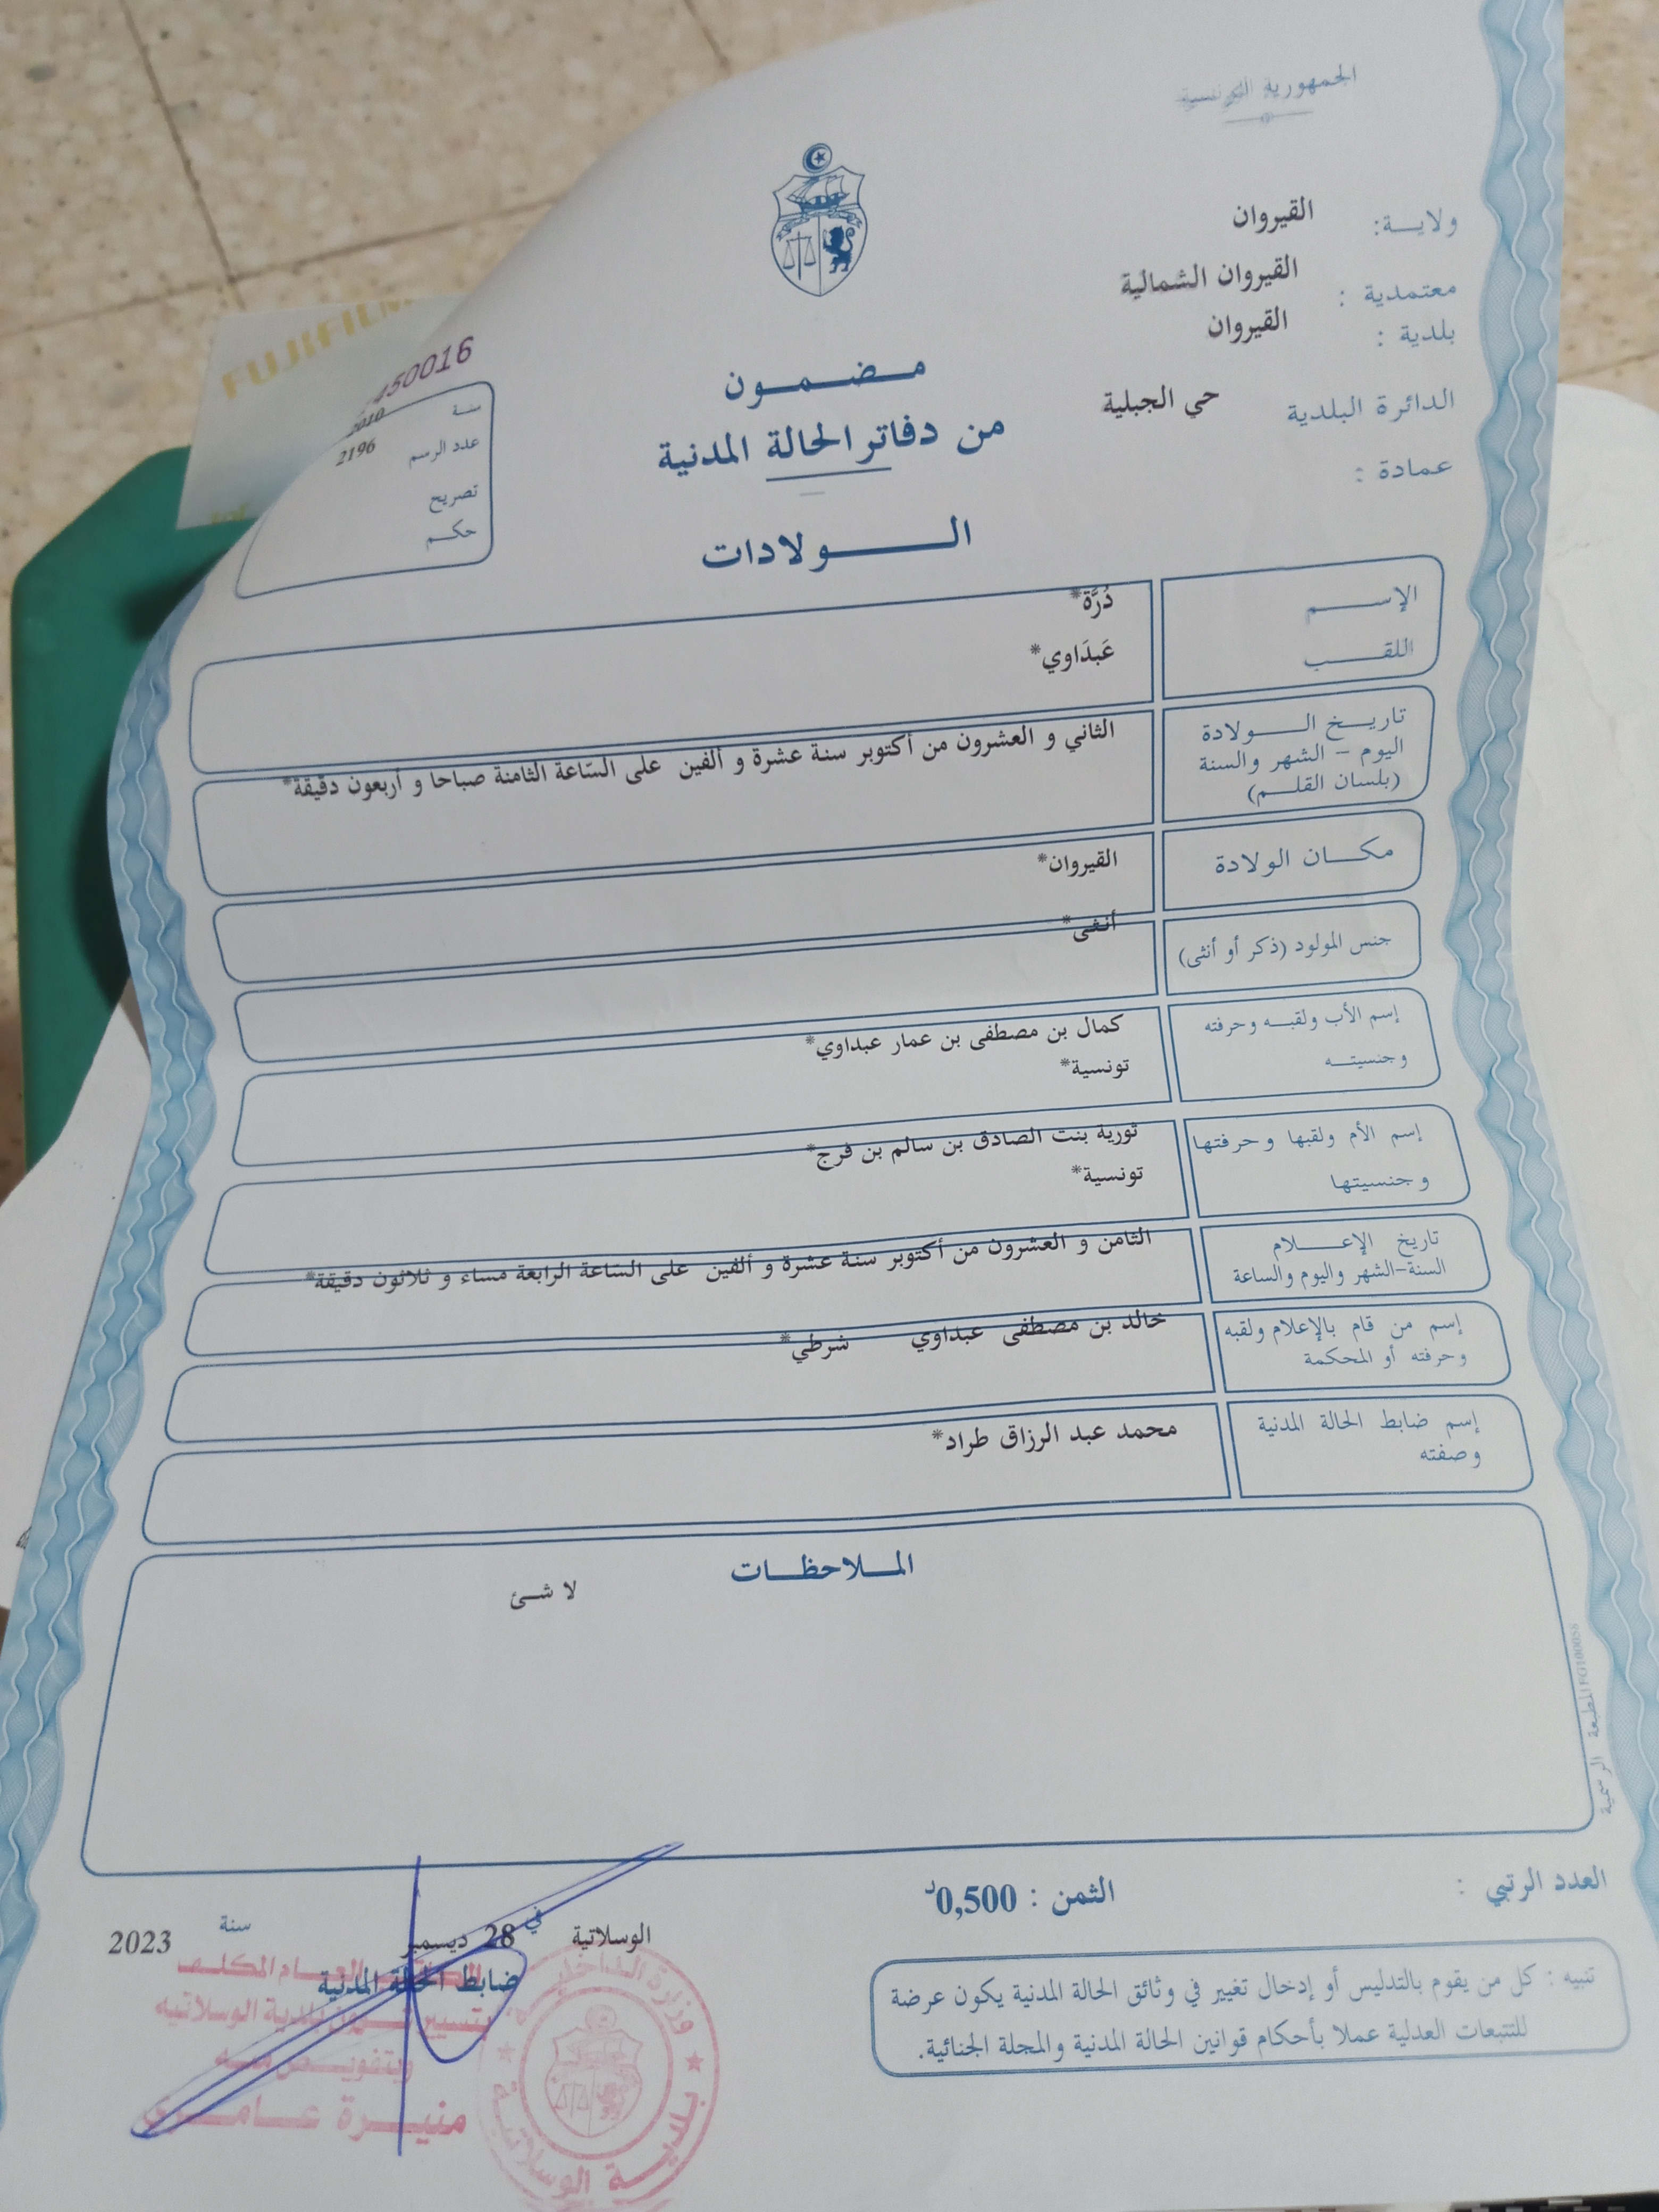 الجمهورية التونسية
ولايــة: القيروان
معتمدية : القيروان الشمالية
بلدية : القيروان
الدائرة البلدية حي الجبلية
عمادة :
FUJIFILM
50016
سنة 2010
عدد الرسم 2196
تصريح
حكم
مضمون
من دفاتر الحالة المدنية
الولادات
الإسم دُرَّة*
اللقب عَبدَاوي*
تاريخ الولادة
اليوم - الشهر والسنة
(بلسان القلم)
الثاني و العشرون من أكتوبر سنة عشرة و ألفين على السّاعة الثامنة صباحا و أربعون دقيقة*
مكان الولادة القيروان*
جنس المولود (ذكر أو أنثى) أنثى*
إسم الأب ولقبه وحرفته كمال بن مصطفى بن عمار عبداوي*
وجنسيته تونسية*
إسم الأم ولقبها وحرفتها ثورية بنت الصادق بن سالم بن فرج*
وجنسيتها تونسية*
تاريخ الإعلام
السنة-الشهر واليوم والساعة
الثامن و العشرون من أكتوبر سنة عشرة و ألفين على السّاعة الرابعة مساء و ثلاثون دقيقة*
إسم من قام بالإعلام ولقبه
وحرفته أو المحكمة
خالد بن مصطفى عبداوي شرطي*
إسم ضابط الحالة المدنية
وصفته
محمد عبد الرزاق طراد*
الملاحظات
لا شئ
المطبعة الرسمية
العدد الرتبي :
الثمن : 0,500د
الوسلاتية في 28 ديسمبر سنة 2023
ضابط الحالة المدنية
العام المكلف
بتسيير شؤون بلدية الوسلاتية
وبتفويض منه
منيرة عامري
وزارة الداخلية
بلدية الوسلاتية
تنبيه : كل من يقوم بالتدليس أو إدخال تغيير في وثائق الحالة المدنية يكون عرضة
للتتبعات العدلية عملا بأحكام قوانين الحالة المدنية والمجلة الجنائية.